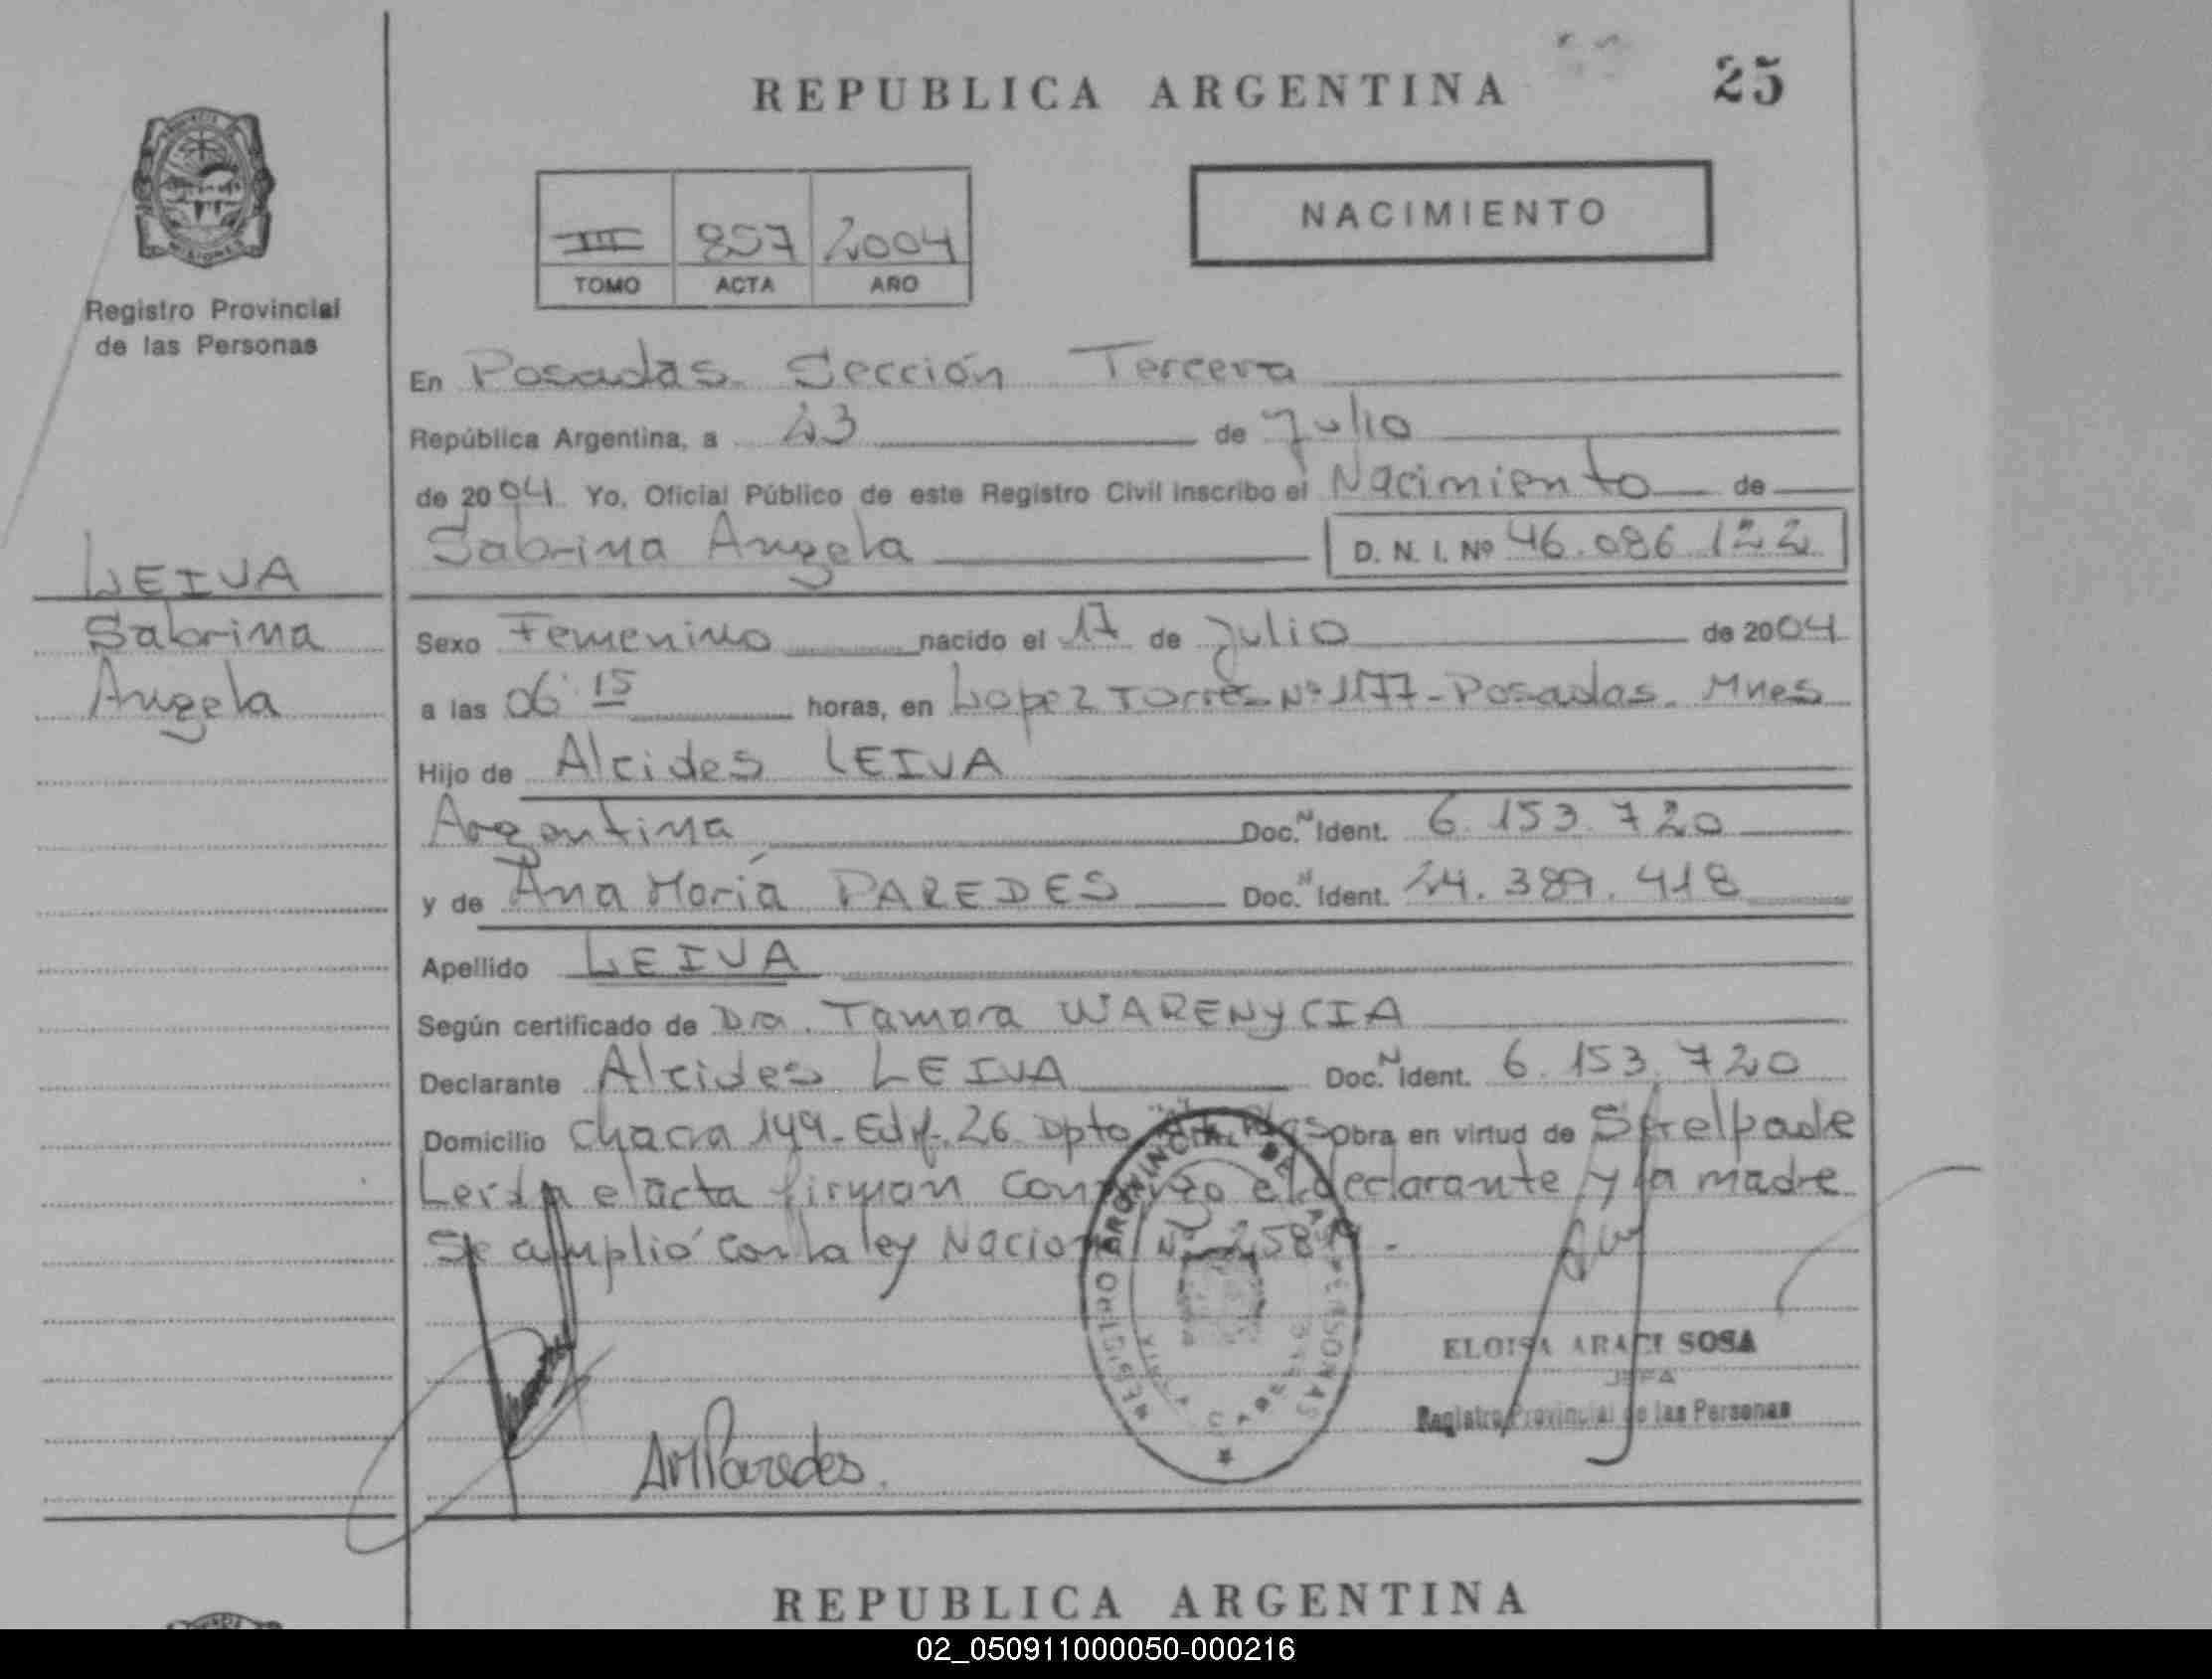 REPUBLICA ARGENTINA
25
Registro Provincial
de las Personas
III 857 2004
TOMO ACTA AÑO
NACIMIENTO
En Posadas Sección Tercera
República Argentina, a 23 de Julio
de 2004 Yo, Oficial Público de este Registro Civil inscribo el Nacimiento de
Sabrina Angela D. N. I. Nº 46.086.122
LEIVA
Sabrina
Angela
Sexo Femenino nacido el 17 de Julio de 2004
a las 06:15 horas, en Lopez Torres Nº 1177-Posadas. Mnes
Hijo de Alcides LEIVA
Argentina Doc. N Ident. 6.153.720
y de Ana María PAREDES Doc. N Ident. 24.389.418
Apellido LEIVA
Según certificado de Dra. Tamara WARENYCIA
Declarante Alcides LEIVA Doc. N Ident. 6.153.720
Domicilio Chacra 149-Edif. 26 Dpto Obra en virtud de Ser el padre
Leida el acta firman conmigo el declarante y la madre
Se amplió con la ley Nacional Nº
REGISTRO PROVINCIAL DE LAS PERSONAS
ELOISA ARACI SOSA
JEFA
Registro Provincial de las Personas
AMParedes.
REPUBLICA ARGENTINA
02_050911000050-000216